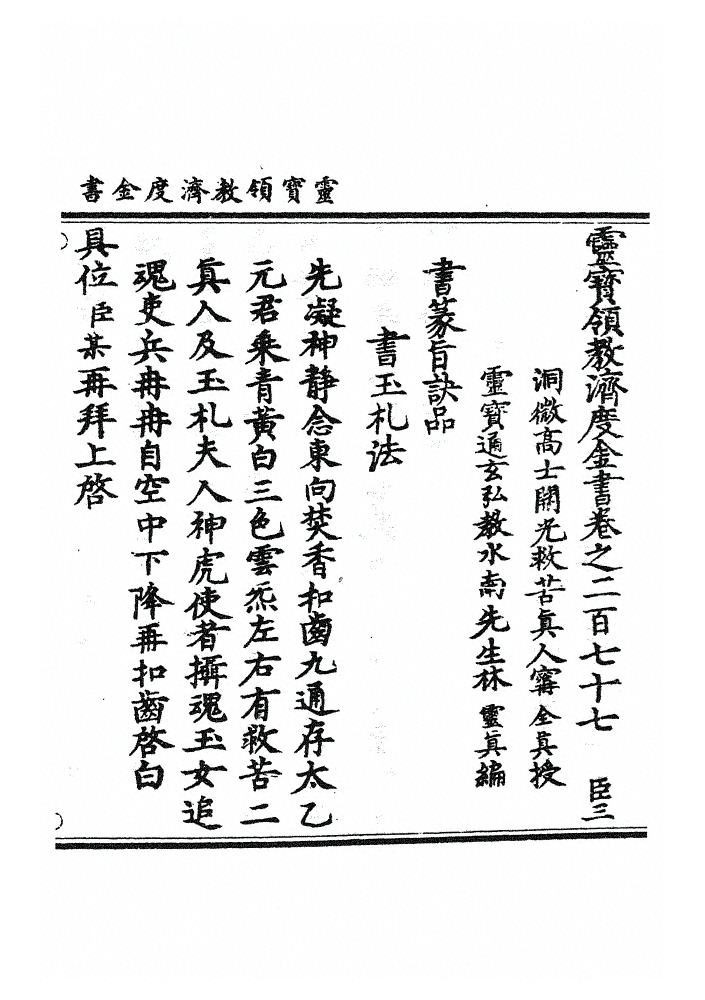 靈寶領教濟度金書
靈寶領教濟度金書卷之二百七十七 臣三
洞微高士開光救苦真人甯全真授
靈寶通玄弘教水南先生林靈真編
書篆旨訣品
書玉札法
先凝神靜念東向焚香扣齒九通存太乙
元君乘青黃白三色雲炁左右有救苦二
真人及玉札夫人神虎使者攝魂玉女追
魂吏兵冉冉自空中下降再扣齒啓白
具位臣某再拜上啓